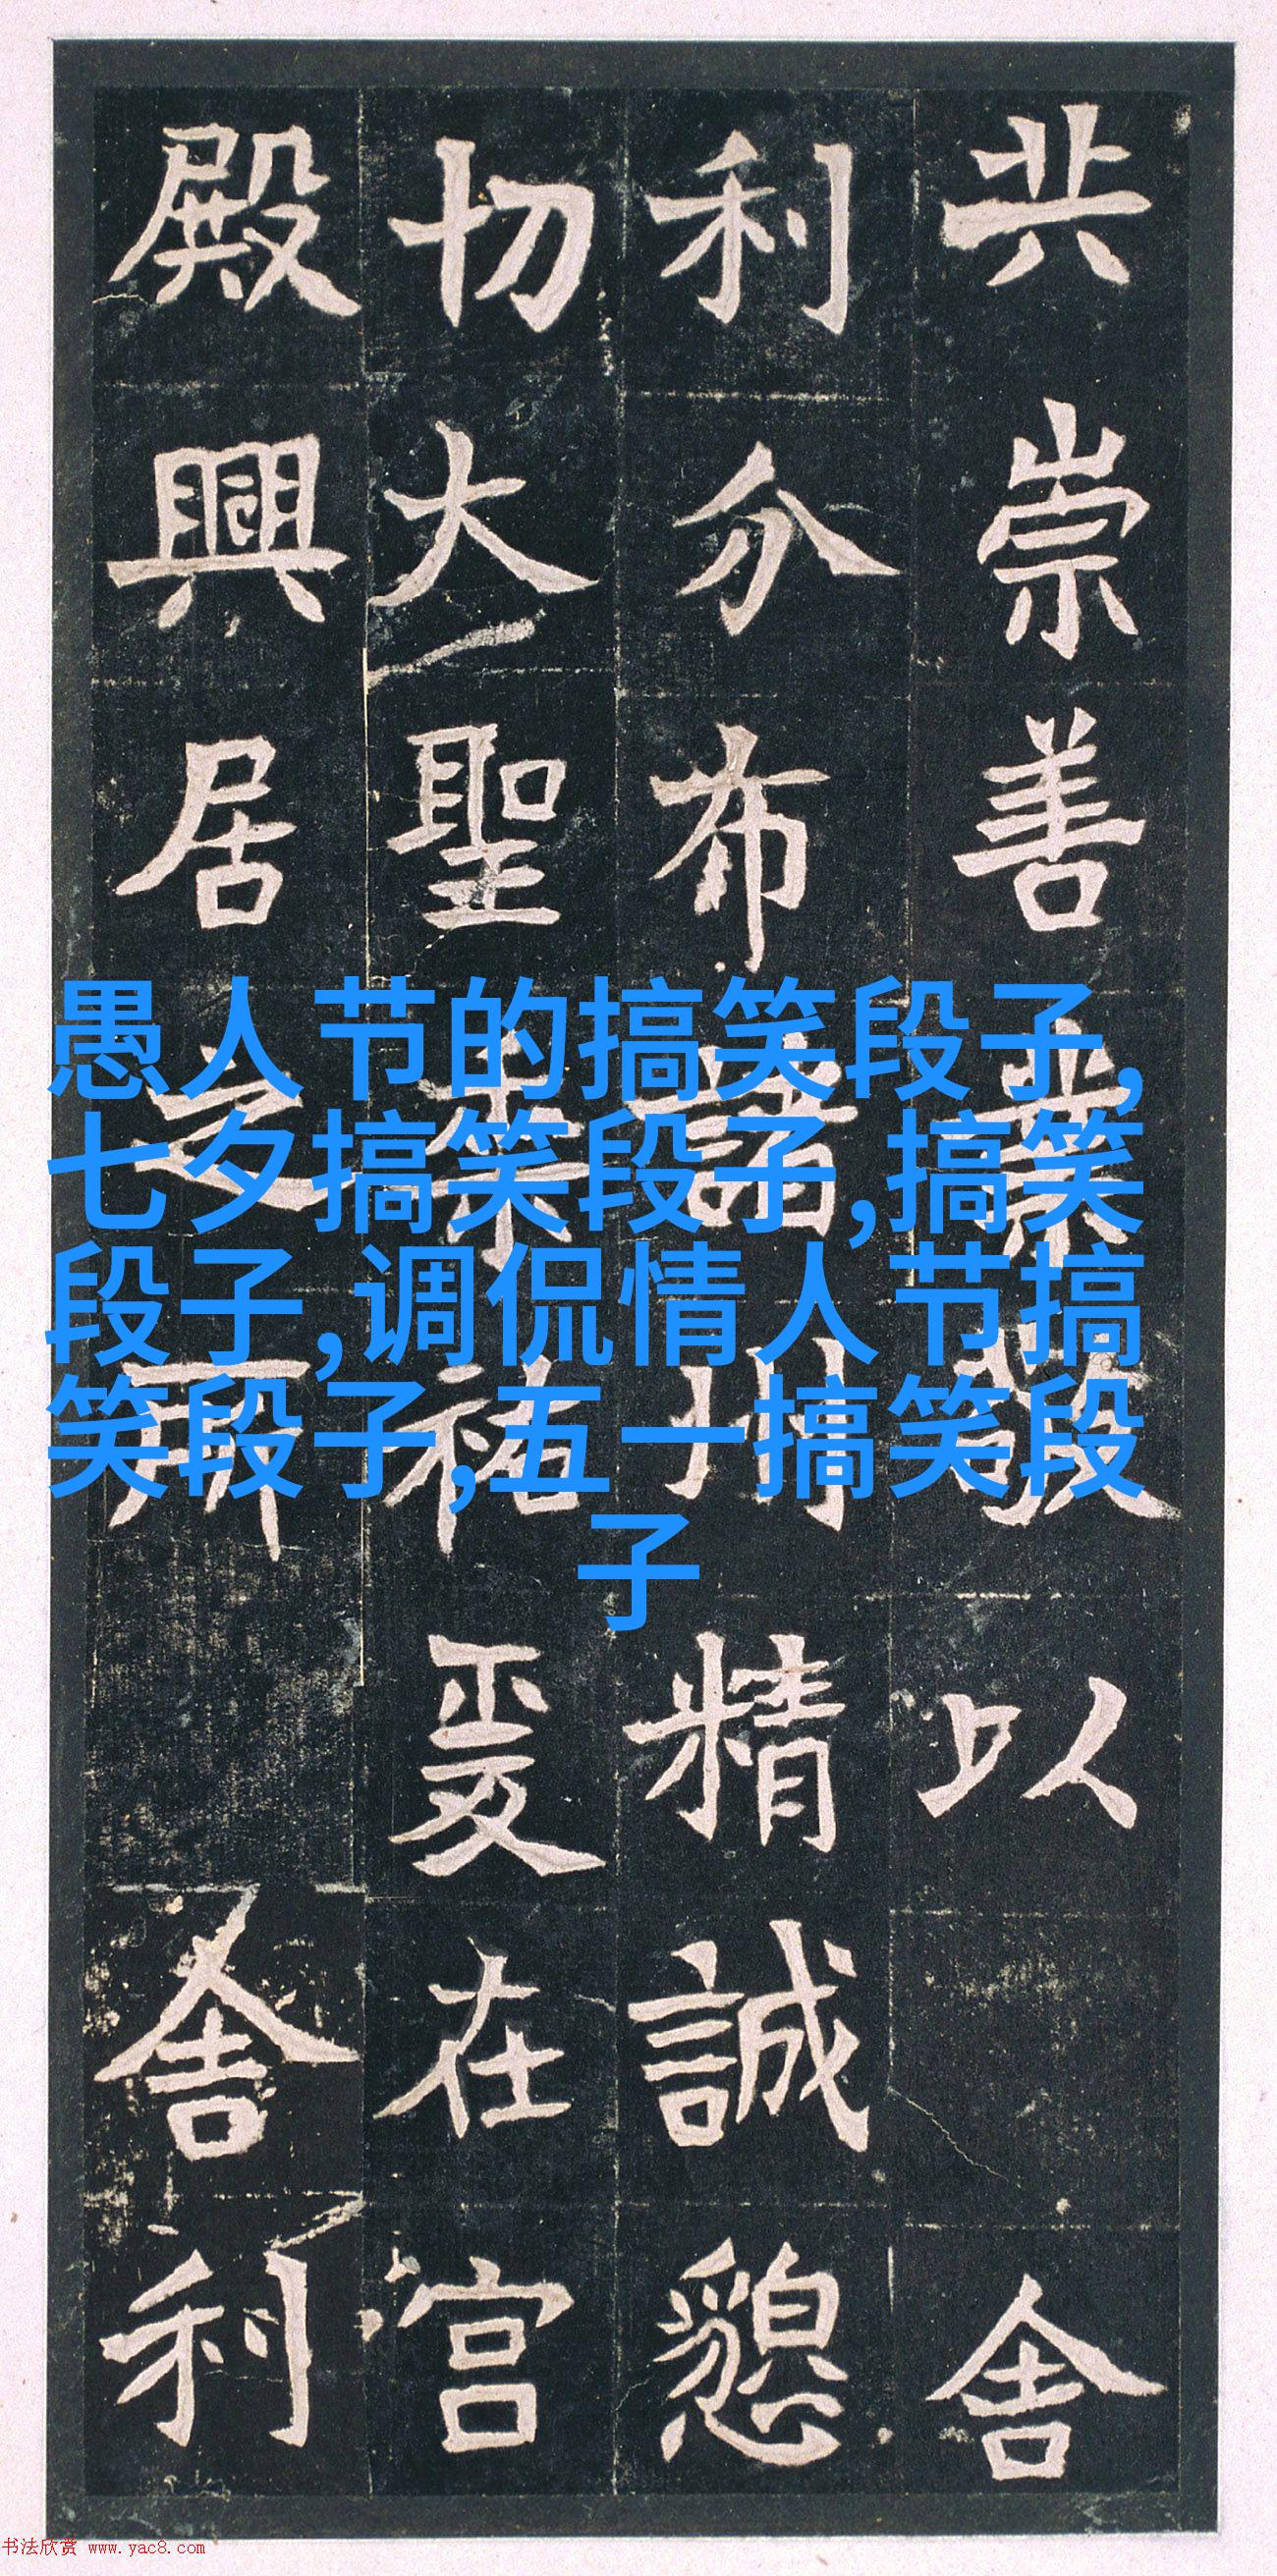 共崇善業以舍
利分布諸州精誠懇
切大聖祐爰在宮
殿興居之所舍利
愚人节的搞笑段子,
七夕搞笑段子,搞笑
段子,调侃情人节搞
笑段子,五一搞笑段
子
书法欣赏 www.yac8.com